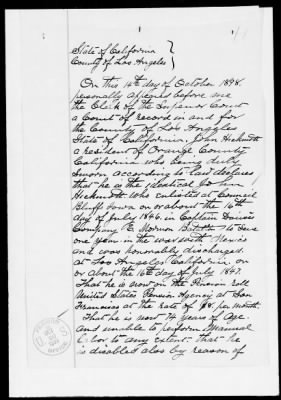 State of California }
County of Los Angeles }
On this 14th day of October 1898.
personally appeared before me
the Clerk of the Superior Court
a Court of record in and for
the County of Los Angeles
State of California, John
a resident of Orange County
California who being duly
sworn according to law declares
that he is the identical John
who enlisted at Council
Bluff Iowa, on or about the 16th
day of July 1846. in Captain
Company E. Mormon to serve
one year in the war with Mexico
and was honorably discharged
at Los Angeles California. on
or about the 16th day of July 1847.
That he is now on the Pension roll
United States Pension Agency at San
Francisco at the rate of $8 per month.
That he is now 74 years of Age
and unable to perform Manual
labor to any extent. that he
is disabled also by reason of